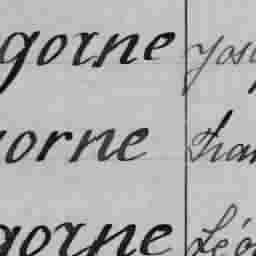 gorne Jos
orne Fran
gorne Léo